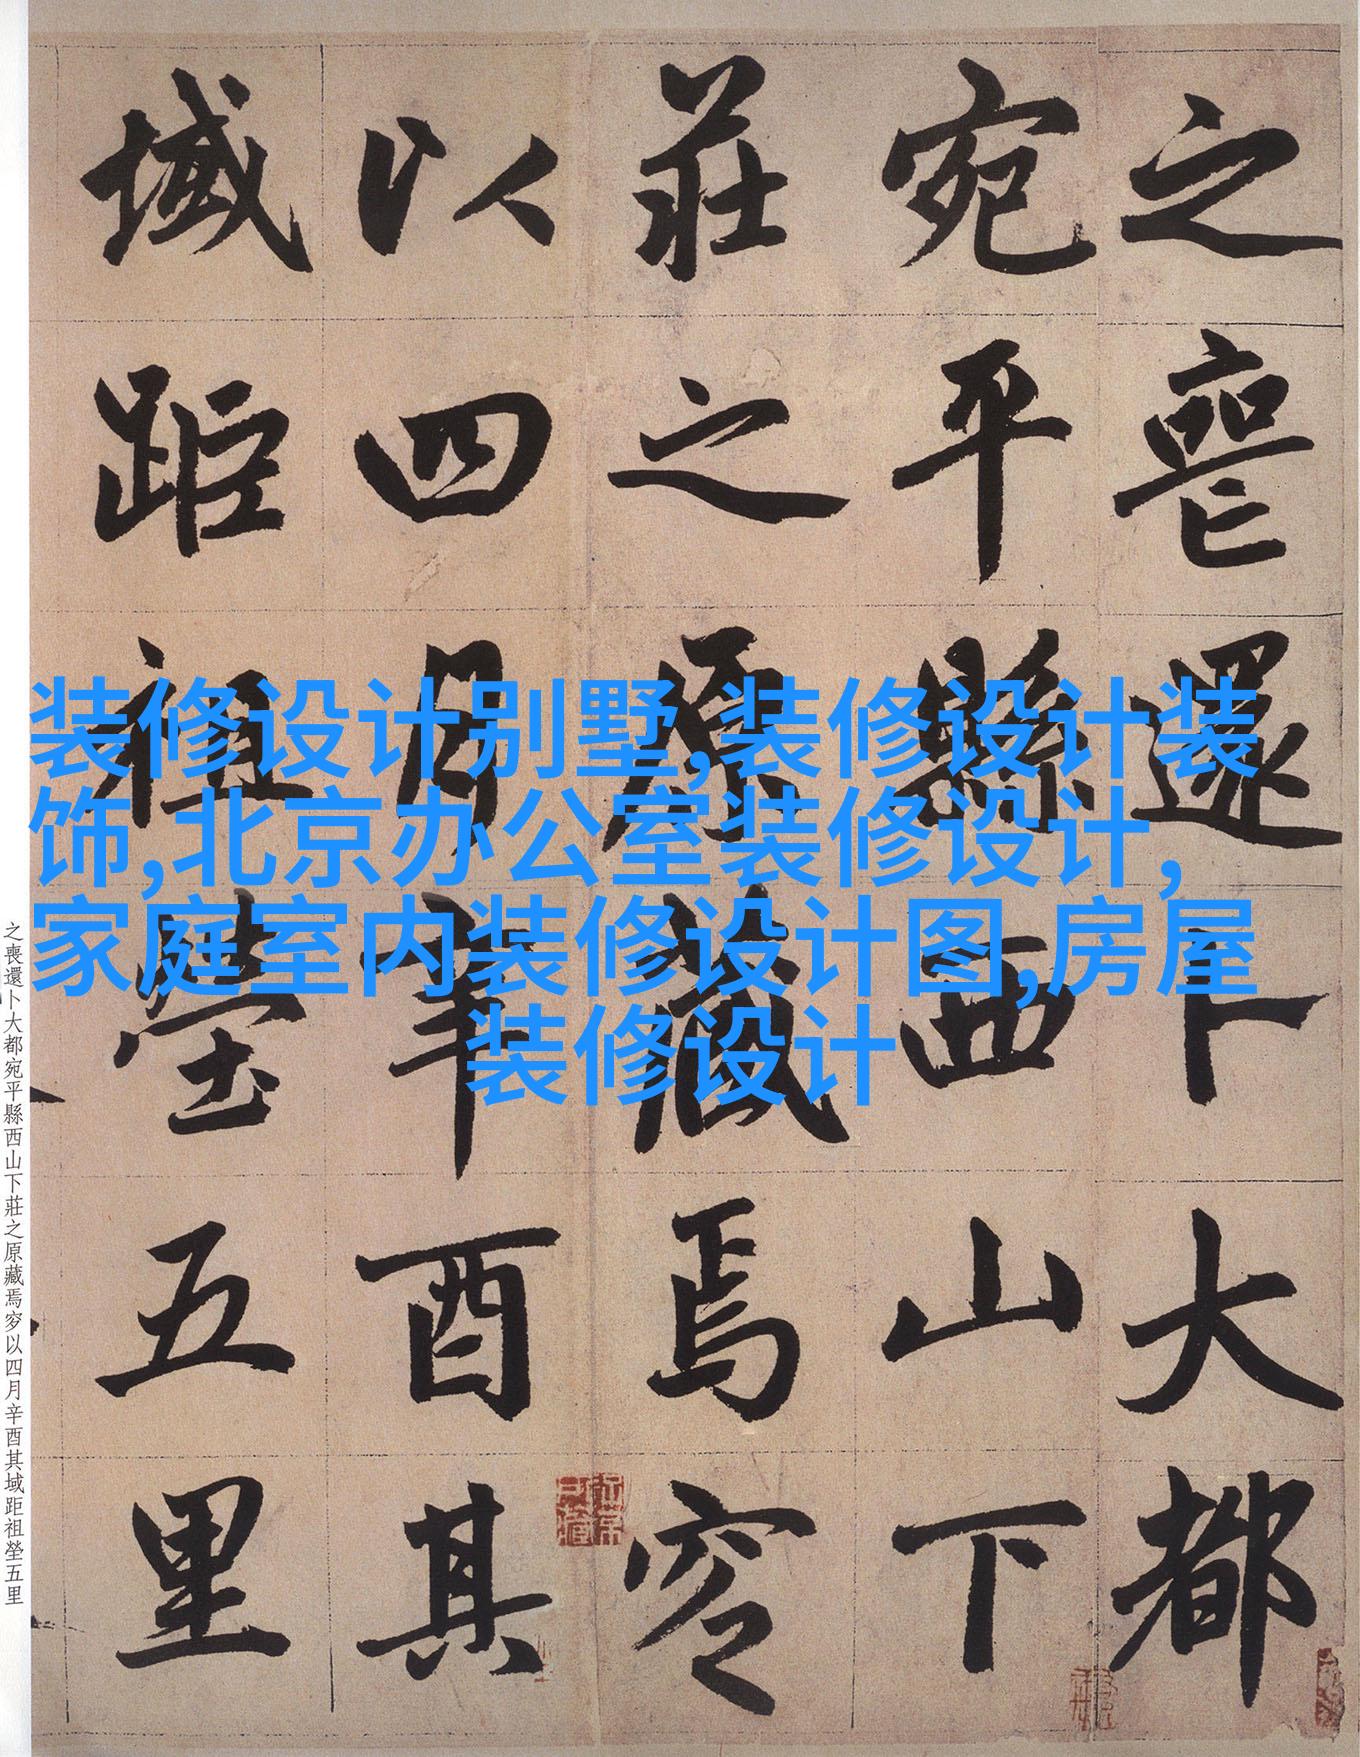 之喪還卜大都
宛平縣西山下
莊之原藏焉穸
以四月辛酉其
域距祖塋五里
装修设计别墅,装修设计装
饰,北京办公室装修设计,
家庭室内装修设计图,房屋
装修设计
之喪還卜大都宛平縣西山下莊之原藏焉穸以四月辛酉其域距祖塋五里